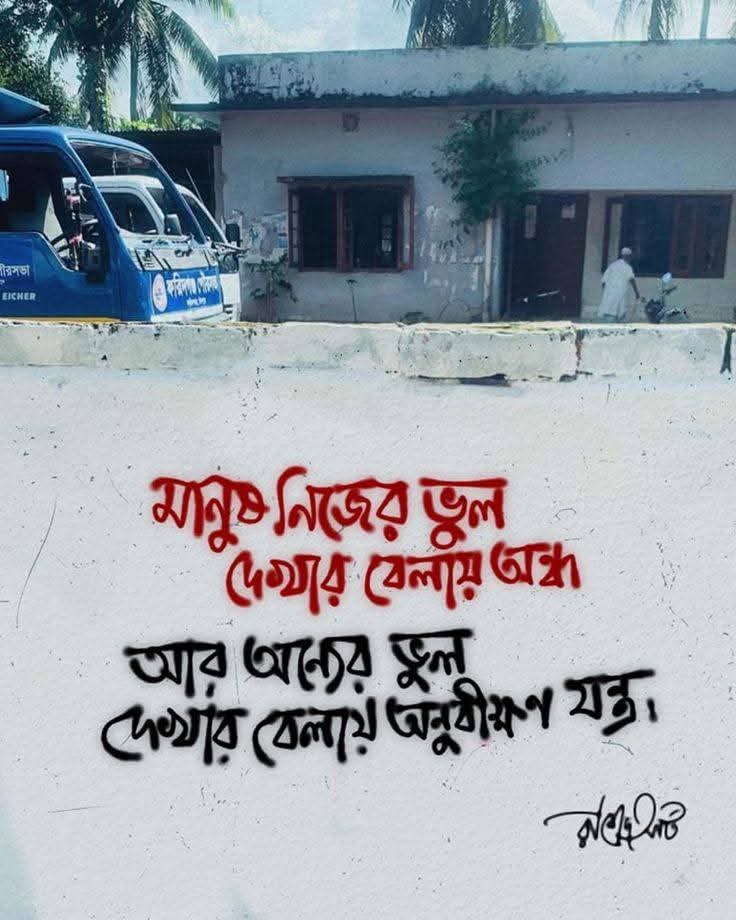 পৌরসভা
EICHER
ফরিদগঞ্জ পৌরসভা
মানুষ নিজের ভুল
দেখার বেলায় অন্ধ
আর অন্যের ভুল
দেখার বেলায় অনুবীক্ষণ যন্ত্র।